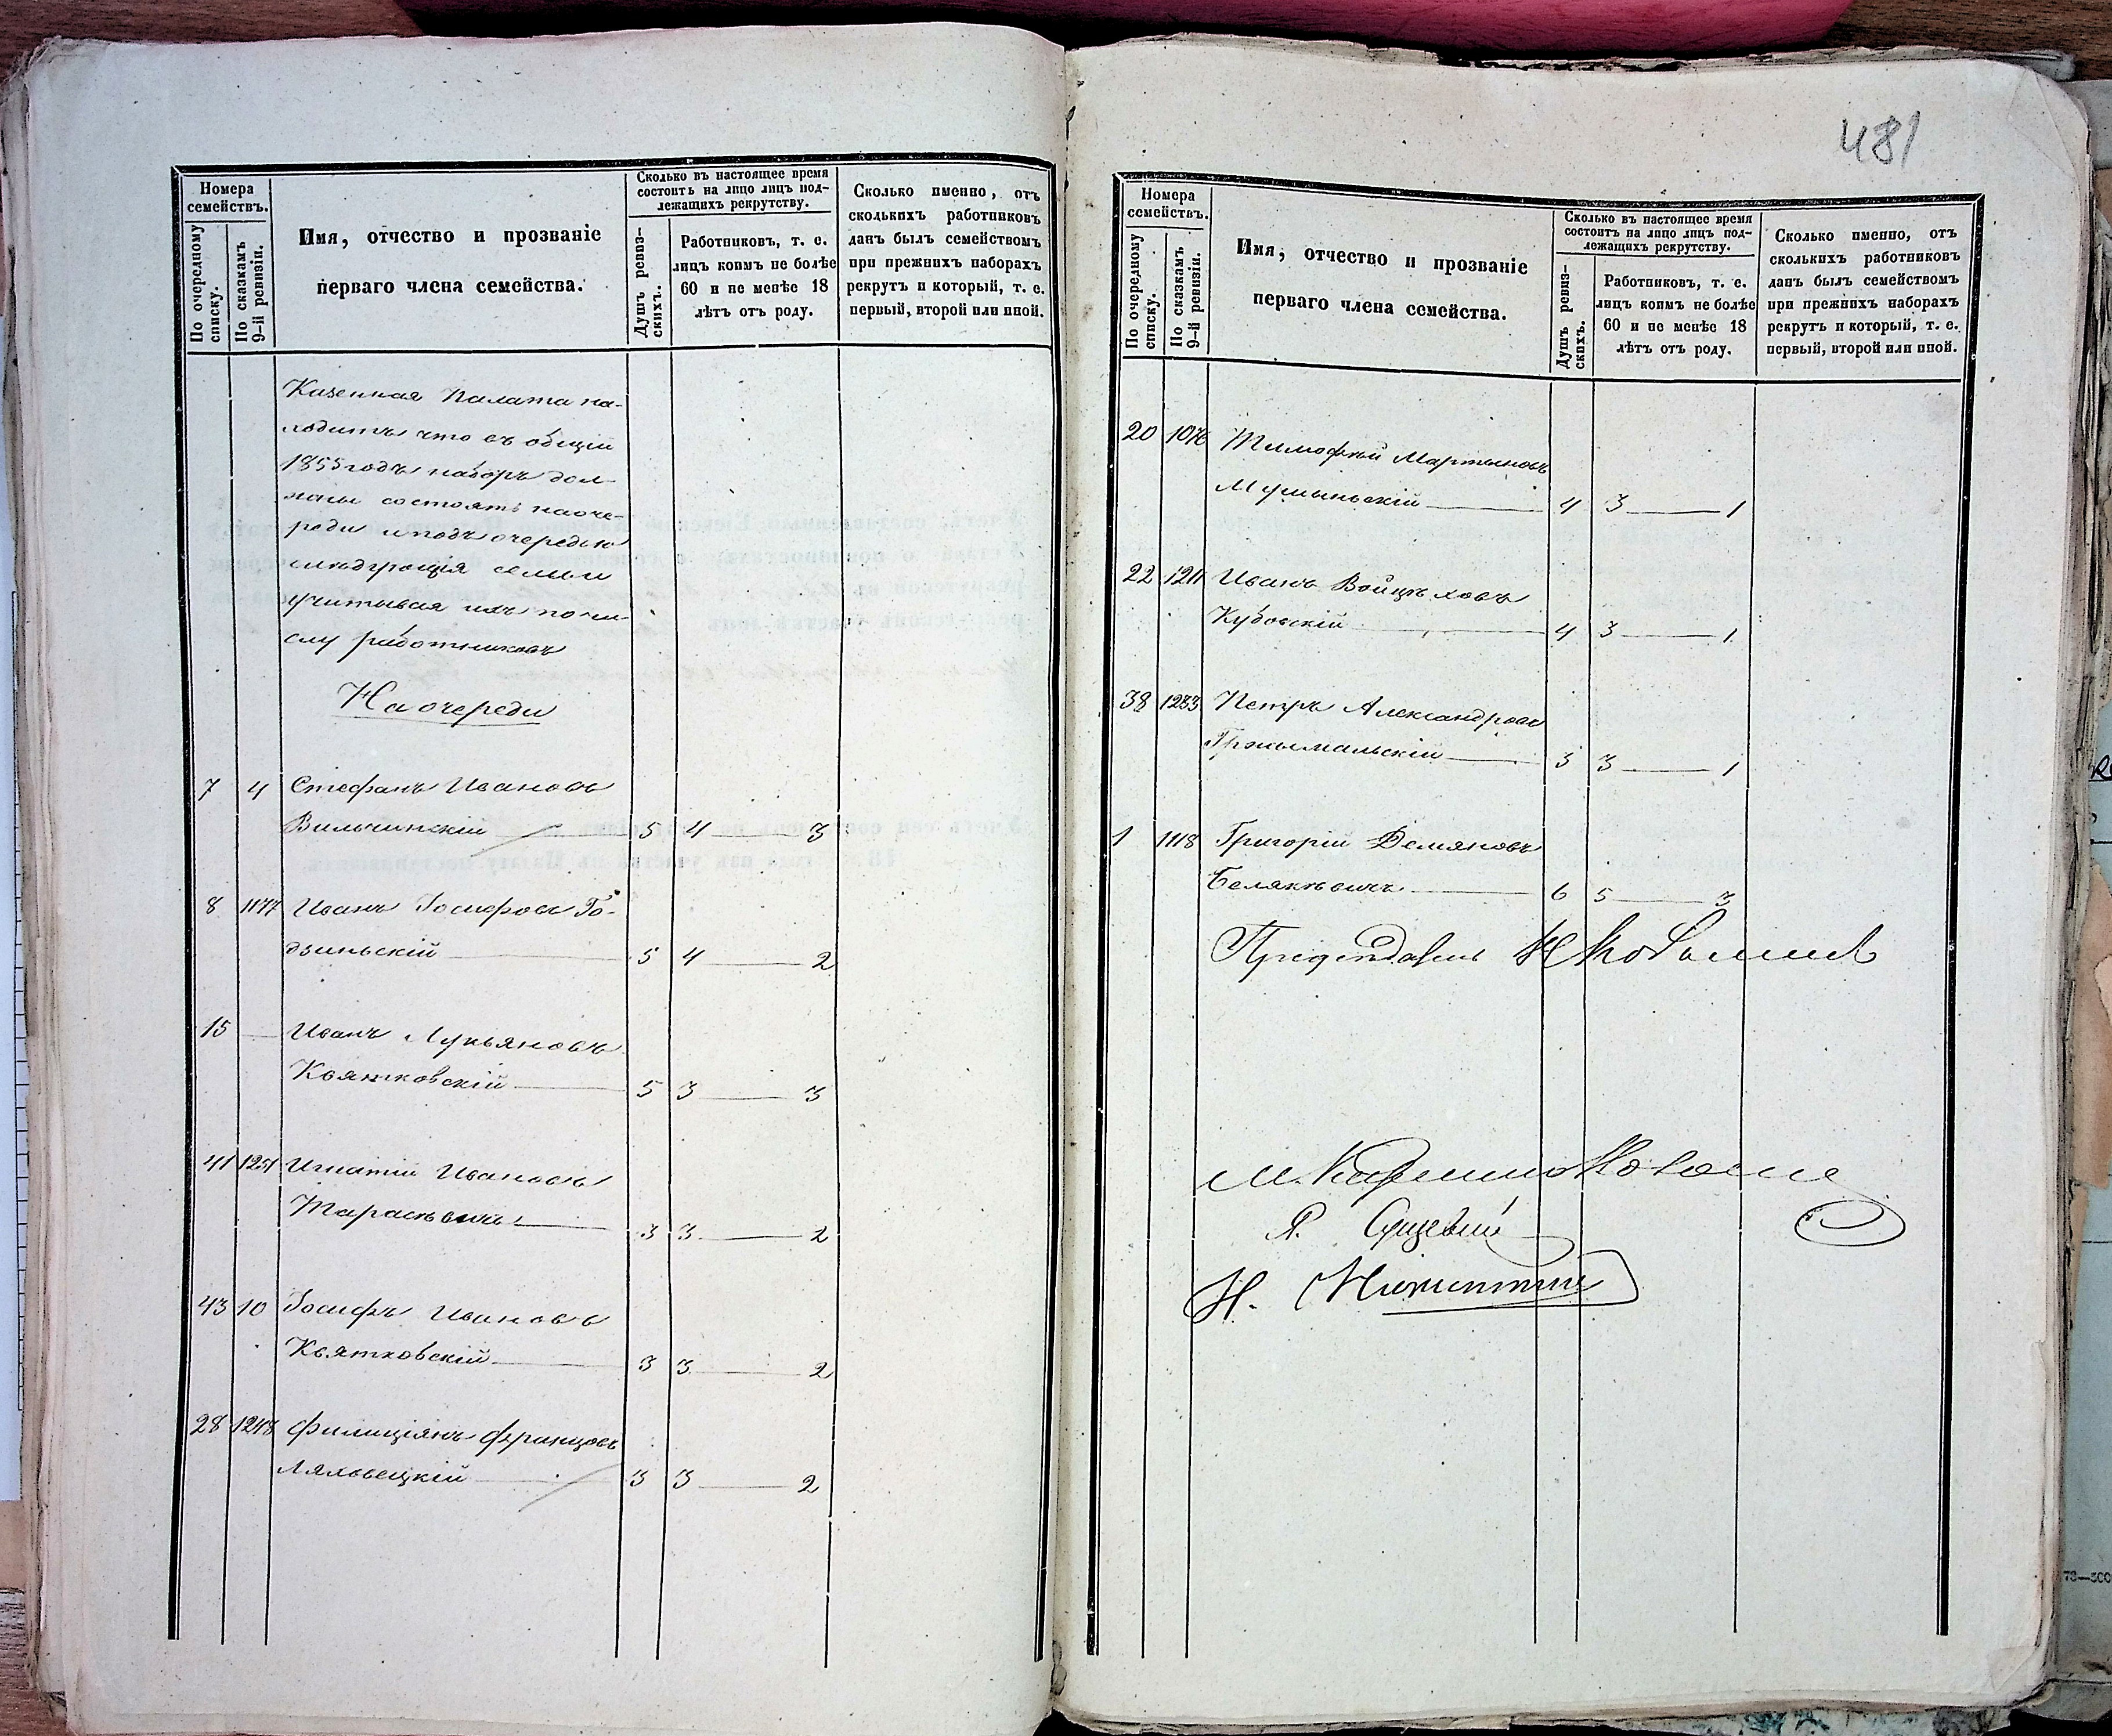 Номера
семействъ.
По очередному
списку.
По сказкамъ
9-й ревизіи.
Имя, отчество и прозваніе
перваго члена семейства.
Сколько въ настоящее время
состоитъ на лицо лицъ под-
лежащихъ рекрутству.
Душъ ревиз-
скихъ.
Работниковъ, т. е.
лицъ коимъ не болѣе
60 и не менѣе 18
лѣтъ отъ роду.
Сколько именно, отъ
сколькихъ работниковъ
данъ былъ семействомъ
при прежнихъ наборахъ
рекрутъ и который, т. е.
первый, второй или иной.
Казенная Палата на-
ходитъ что въ общій
1855 годъ наборъ дол-
жны состоять на оче-
реди и подъ очередью
слѣдующія семьи
учитывая ихъ по чи-
слу работниковъ
На очереди
7 4 Стефанъ Ивановъ
Вильчинскій 5 4 — 3
8 1177 Иванъ Іосифовъ Го-
дзиньскій 5 4 — 2
15 — Иванъ Лукьяновъ
Квятковскій 5 3 — 3
41 1251 Игнатій Ивановъ
Тарасѣвичъ 3 3 — 2
43 10 Іосифъ Ивановъ
Квятковскій 3 3 — 2
28 1248 Филиціянъ Францовъ
Ляховецкій 3 3 — 2
481
Номера
семействъ.
По очередному
списку.
По сказкамъ
9-й ревизіи.
Имя, отчество и прозваніе
перваго члена семейства.
Сколько въ настоящее время
состоитъ на лицо лицъ под-
лежащихъ рекрутству.
Душъ ревиз-
скихъ.
Работниковъ, т. е.
лицъ коимъ не болѣе
60 и не менѣе 18
лѣтъ отъ роду.
Сколько именно, отъ
сколькихъ работниковъ
данъ былъ семействомъ
при прежнихъ наборахъ
рекрутъ и который, т. е.
первый, второй или иной.
20 1076 Тимофѣй Мартыновъ
4 3 — 1
22 1211 Иванъ Войцѣховъ
Кубовскій 4 3 — 1
38 1233 Петръ Александровъ
Гржималскій 3 3 — 1
1 1118 Григорій Демяновъ
Белякѣвичъ 6 5 — 3
Предсѣдатель
Н. Никитинъ